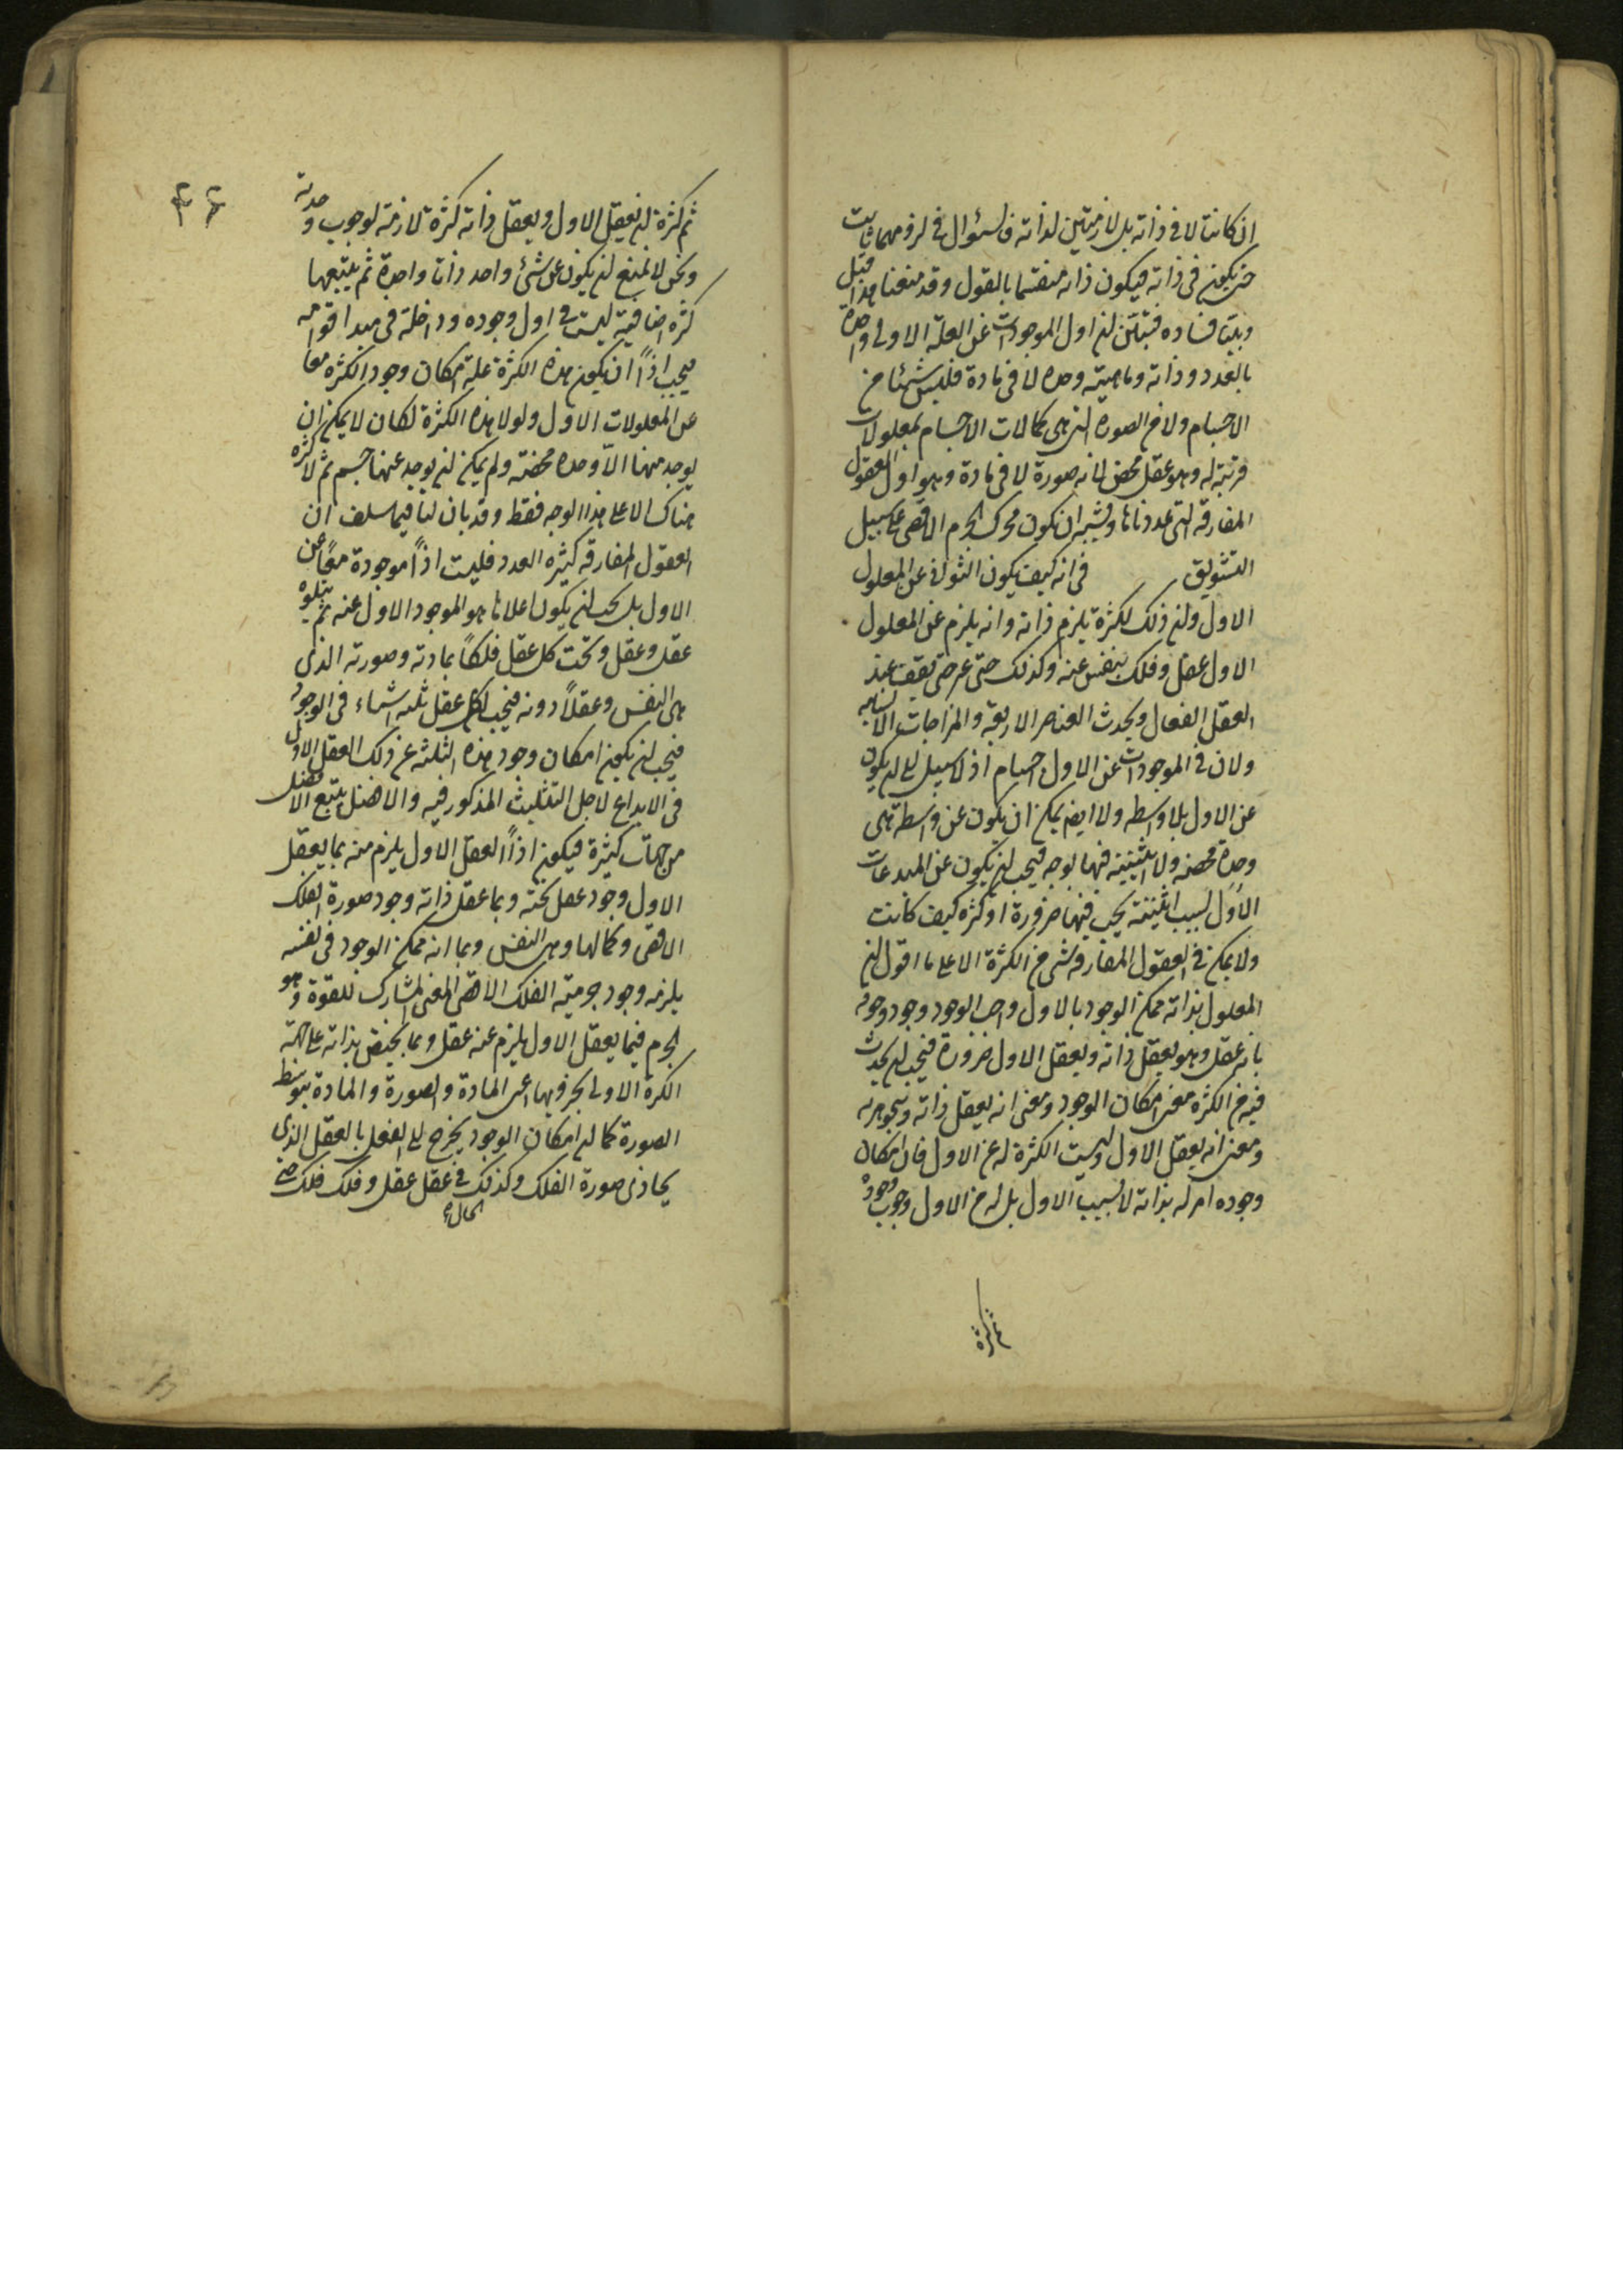 ان كانتا لا فى ذاته بل لازمتين لذاته فالسؤال فى لزومهما ثابت
حتى يكون فى ذاته فيكون ذاته منقسما بالقول وقد منعنا هذا قبل
وبينا فساده فتبين ان اول الموجودات عن العلة الاولى واحدة
بالعدد وذاته وماهيته وحده لا فى مادة فليس شيئا من
الاجسام ولا من الصورة التى هى كمالات الاجسام بمعلولات
قريبة له وهو عقل محض لانه صورة لا فى مادة وهو اول العقول
المفارقة التى عددناها ويشبه ان تكون محرك الجرم الاقصى على سبيل
التشويق فى انه كيف يكون الثوانى عن المعلول
الاول وان ذلك لكثرة يلزم ذاته وانه يلزم عن المعلول
الاول عقل وفلك بنفس عنه وكذلك حتى يقف عند
العقل الفعال ويحدث العناصر الاربعة والمزاجات الانسانية
ولان فى الموجودات عن الاول اجسام اذ لا سبيل الى ان يكون
عن الاول بلا واسطه ولا ايضا يمكن ان يكون عن واسطة هى
وحدة محضه ولا اثنينية فيها بوجه فيجب ان يكون عن المبدعات
الاول لسبب اثنينية يجب فيها ضرورة او كثره كيف كانت
ولا يمكن فى العقول المفارقه شى من الكثرة الا على ما اقول ان
المعلول بذاته ممكن الوجود بالاول واجب الوجود وجود وجوده
بانه عقل وهو يعقل ذاته ويعقل الاول ضرورة فيجب ان يحدث
فيه من الكثره معنى امكان الوجود ومعنى انه يعقل ذاته ويتجوهر به
ومعنى انه يعقل الاول وليست الكثرة له عن الاول فان امكان
وجوده امر له بذاته لا بسبب الاول بل له من الاول وجوب وجوده
ثم كثرة
ثم كثرة ان يعقل الاول ويعقل ذاته كثرة لازمة لوجوب وحدته
ونحن لا نمنع ان يكون عن شئ واحد ذاتا واحدة ثم يتبعها
كثره اضافية ليست فى اول وجوده وداخلة فى مبدا قوامه
فيجب اذاً ان يكون هذه الكثرة علة امكان وجود الكثره معا
عن المعلولات الاول ولولا هذه الكثرة لكان لا يمكن ان
يوجد منها الاّ وحده محضة ولم يمكن ان يوجد عنها جسم ثم لا كثره
هناك الا على هذا الوجه فقط وقد بان لنا فيما سلف ان
العقول المفارقه كثيره العدد فليست اذاً موجودة معاً عن
الاول بل يجب ان يكون اعلاها هو الموجود الاول عنه ثم يتلوه
عقل وعقل وتحت كل عقل فلكاً بمادته وصورته الذى
هى النفس وعقلاً دونه فيجب لكل عقل ثلثه اشياء فى الوجود
فيجب ان يكون امكان وجود هذه الثلثه عن ذلك العقل الاول
فى الابداع لاجل التثليث المذكور فيه والافضل يتبع الافضل
من جهات كثيرة فيكون اذاً العقل الاول يلزم منه بما يعقل
الاول وجود عقل تحته وبما عقل ذاته وجود صورة الفلك
الاقصى وكمالها وهى النفس وبما انه ممكن الوجود فى نفسه
يلزمه وجود جرمية الفلك الاقصى المعنى المشارك للقوة وهو
الجرم فبما يعقل الاول يلزم عنه عقل وبما يختص بذاته على جهته
الكرة الاولى بجزويها اعنى المادة والصورة والمادة بتوسط
الصورة كما ان امكان الوجود يخرج الى الفعل بالعقل الذى
يحاذى صورة الفلك وكذلك فى عقل عقل وفلك فلك حتى